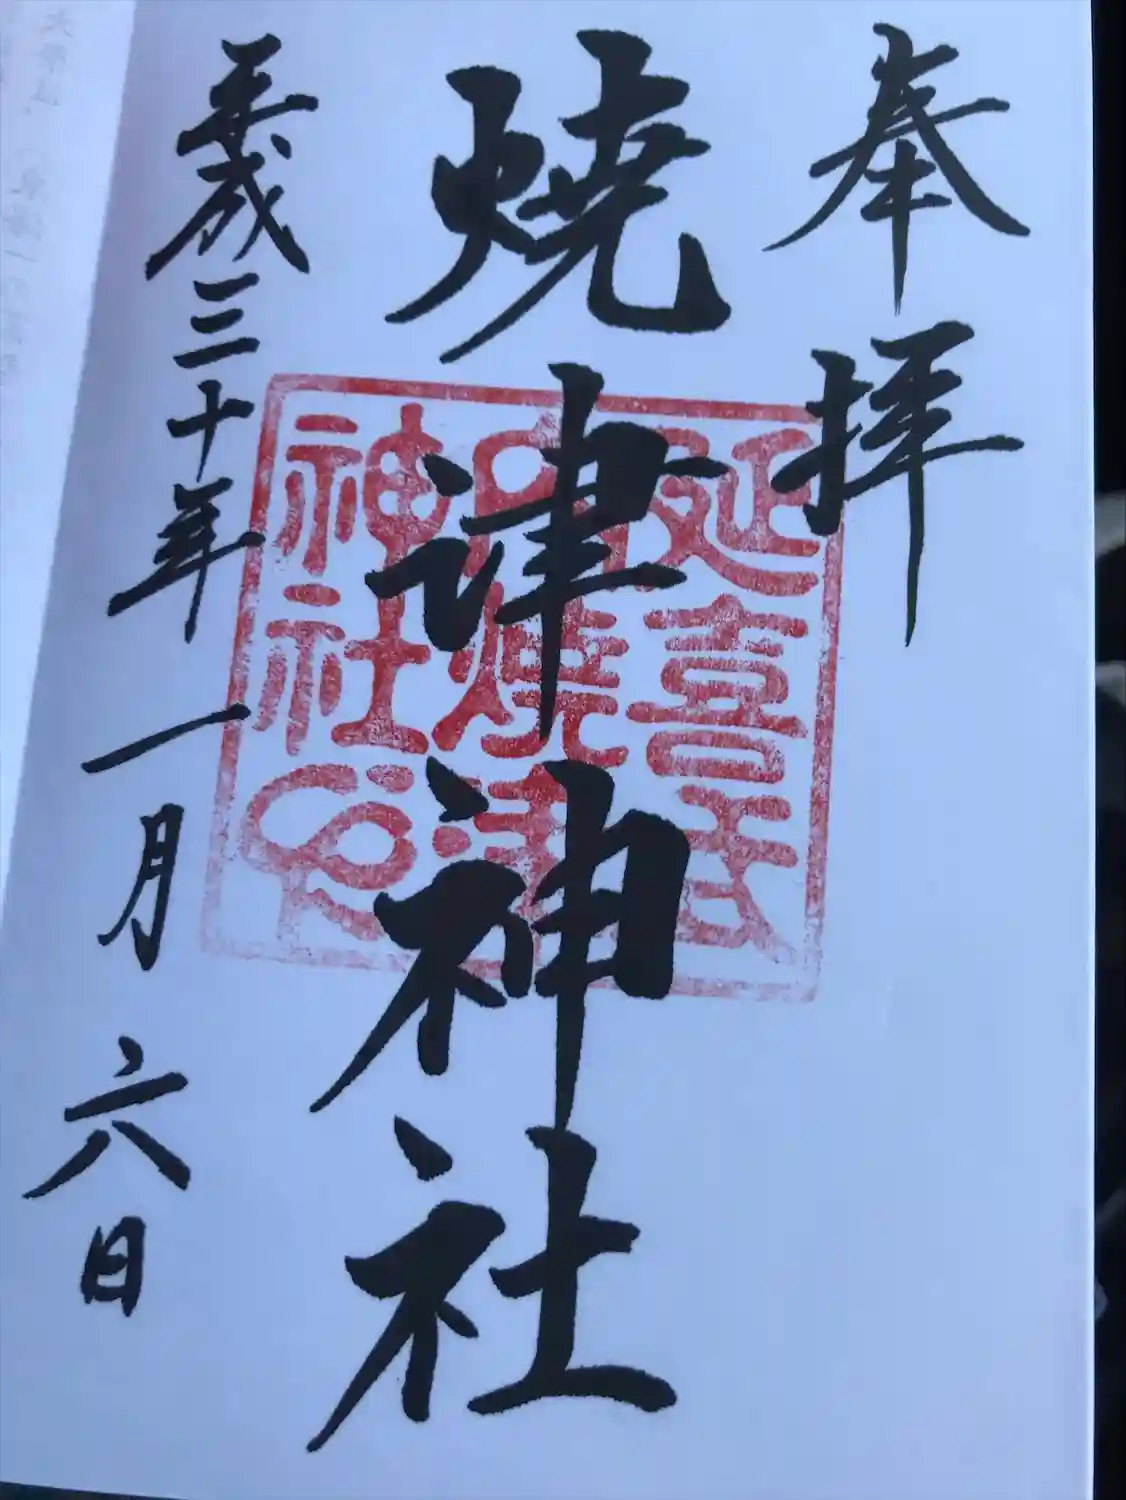 奉拝
焼津神社
平成三十年一月六日
延喜式
内焼津
神社印